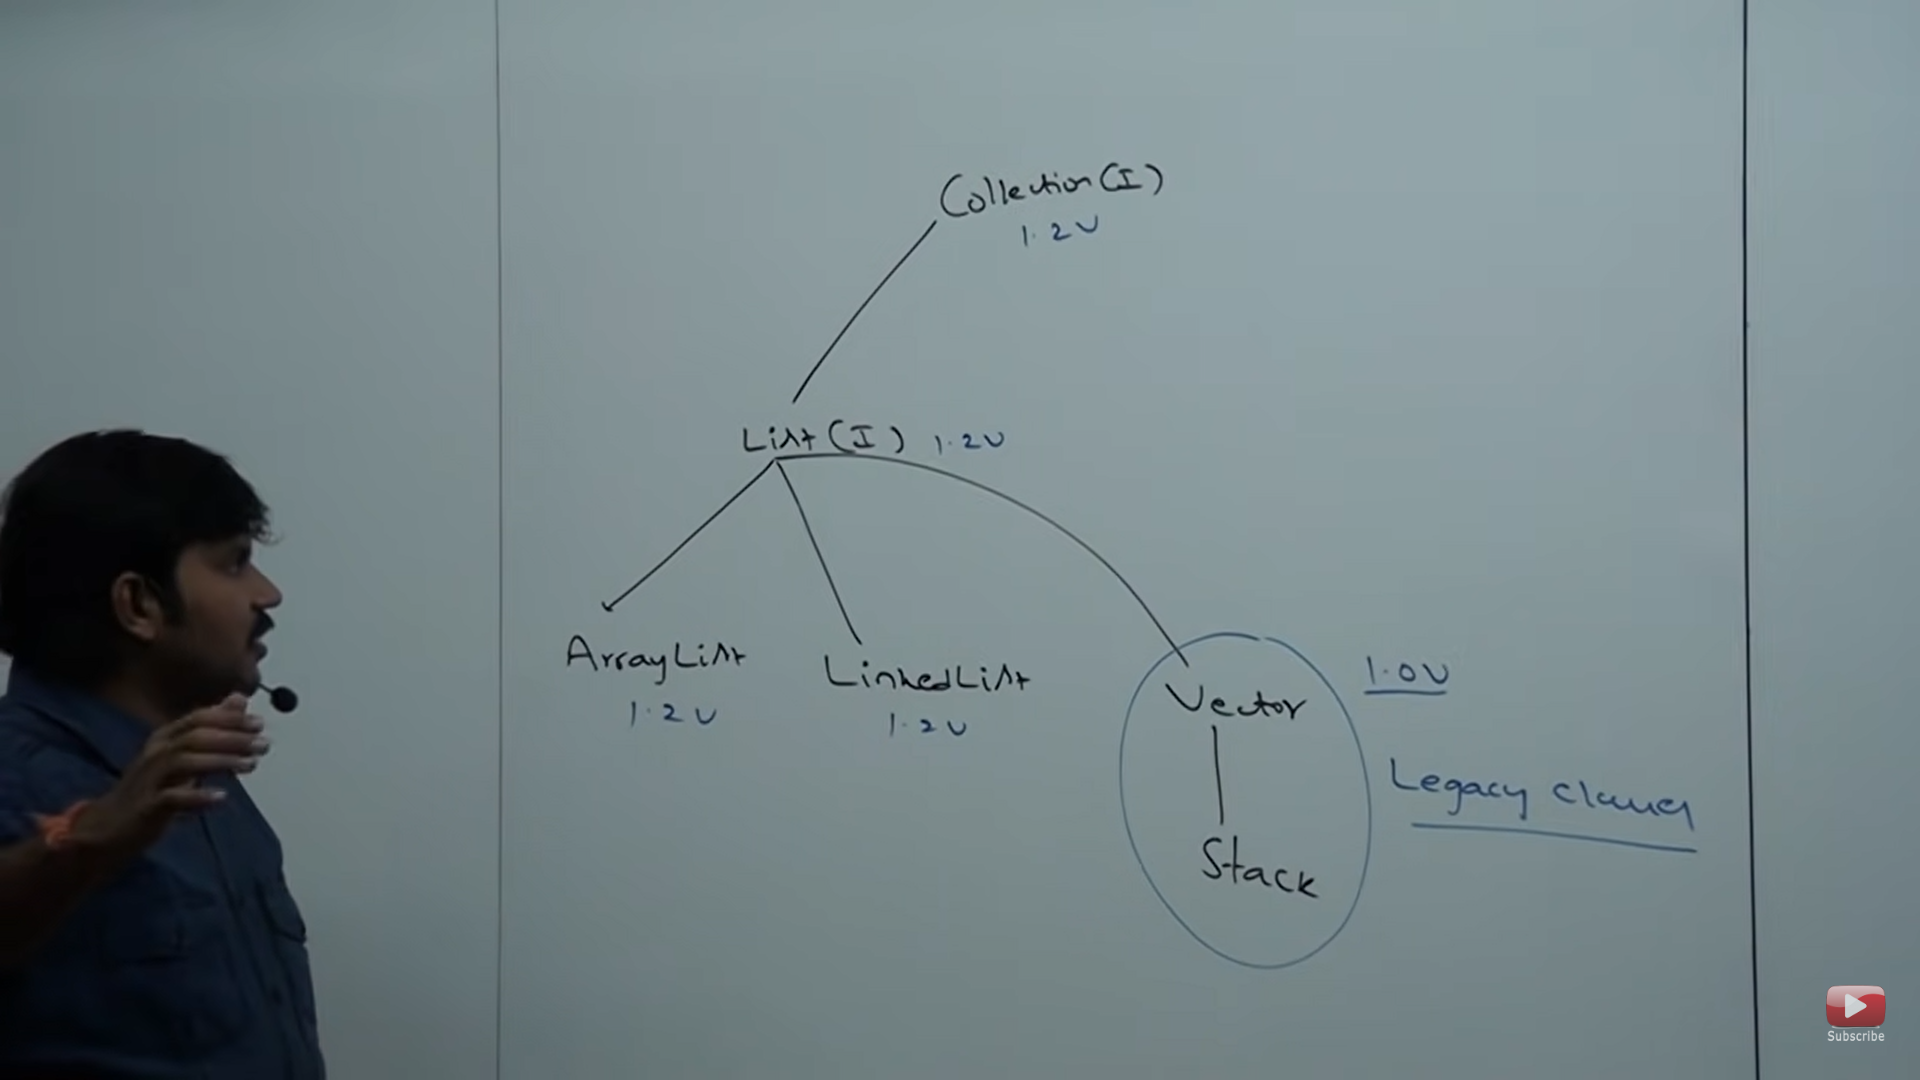 Collection (I)
1.2V
List (I) 1.2V
ArrayList
1.2V
LinkedList
1.2V
Vector
1.0V
Legacy classes
Stack
Subscribe